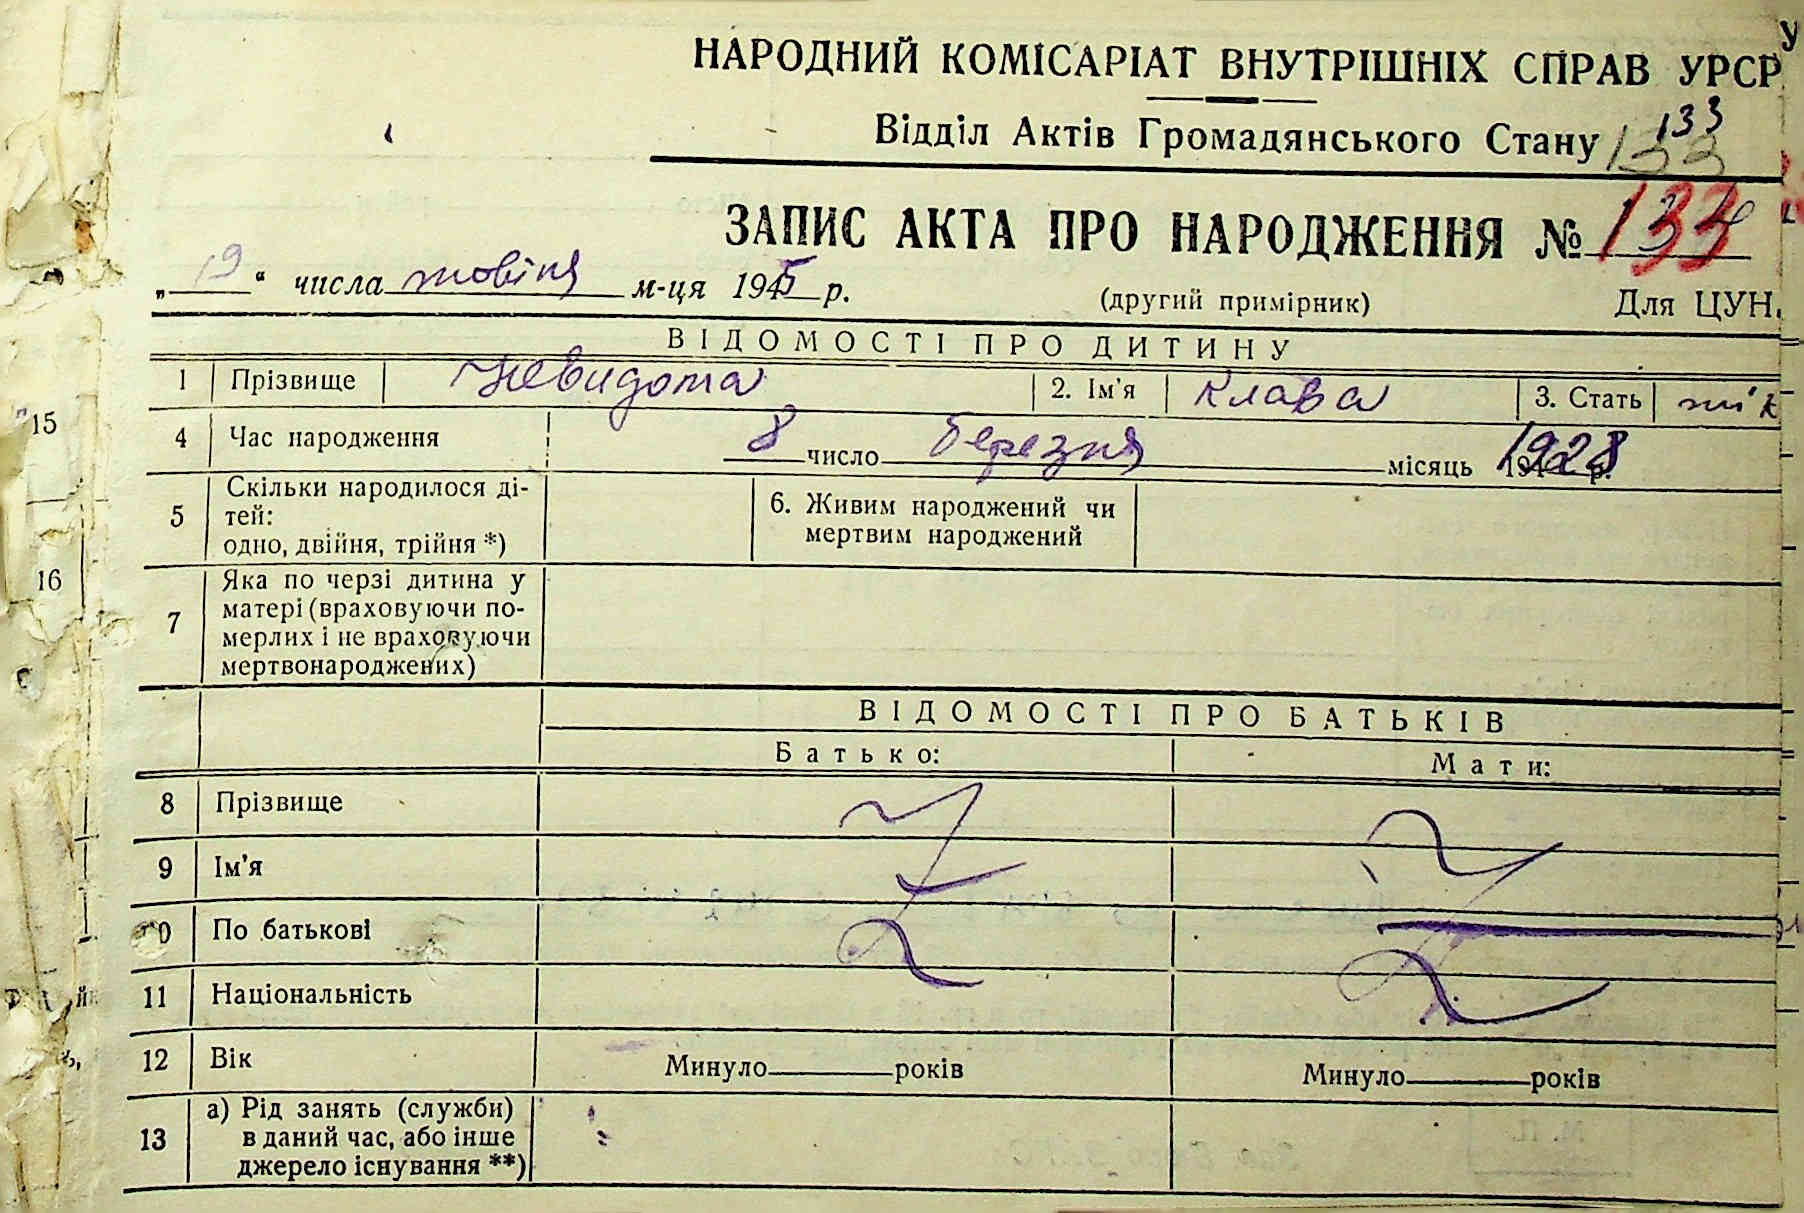 НАРОДНИЙ КОМІСАРІАТ ВНУТРІШНІХ СПРАВ УРСР
Відділ Актів Громадянського Стану 133
133
ЗАПИС АКТА ПРО НАРОДЖЕННЯ № 133
„19“ числа жовтня м-ця 1945 р. (другий примірник) Для ЦУН.
ВІДОМОСТІ ПРО ДИТИНУ
1 Прізвище Невидома 2. Ім'я Клава 3. Стать жік
4 Час народження 8 число березня місяць 1928 р.
5 Скільки народилося ді-
тей:
одно, двійня, трійня *)
6. Живим народжений чи
мертвим народжений
7 Яка по черзі дитина у
матері (враховуючи по-
мерлих і не враховуючи
мертвонароджених)
ВІДОМОСТІ ПРО БАТЬКІВ
Батько: Мати:
8 Прізвище
9 Ім'я
10 По батькові
11 Національність
12 Вік Минуло років Минуло років
13 а) Рід занять (служби)
в даний час, або інше
джерело існування **)
15
16